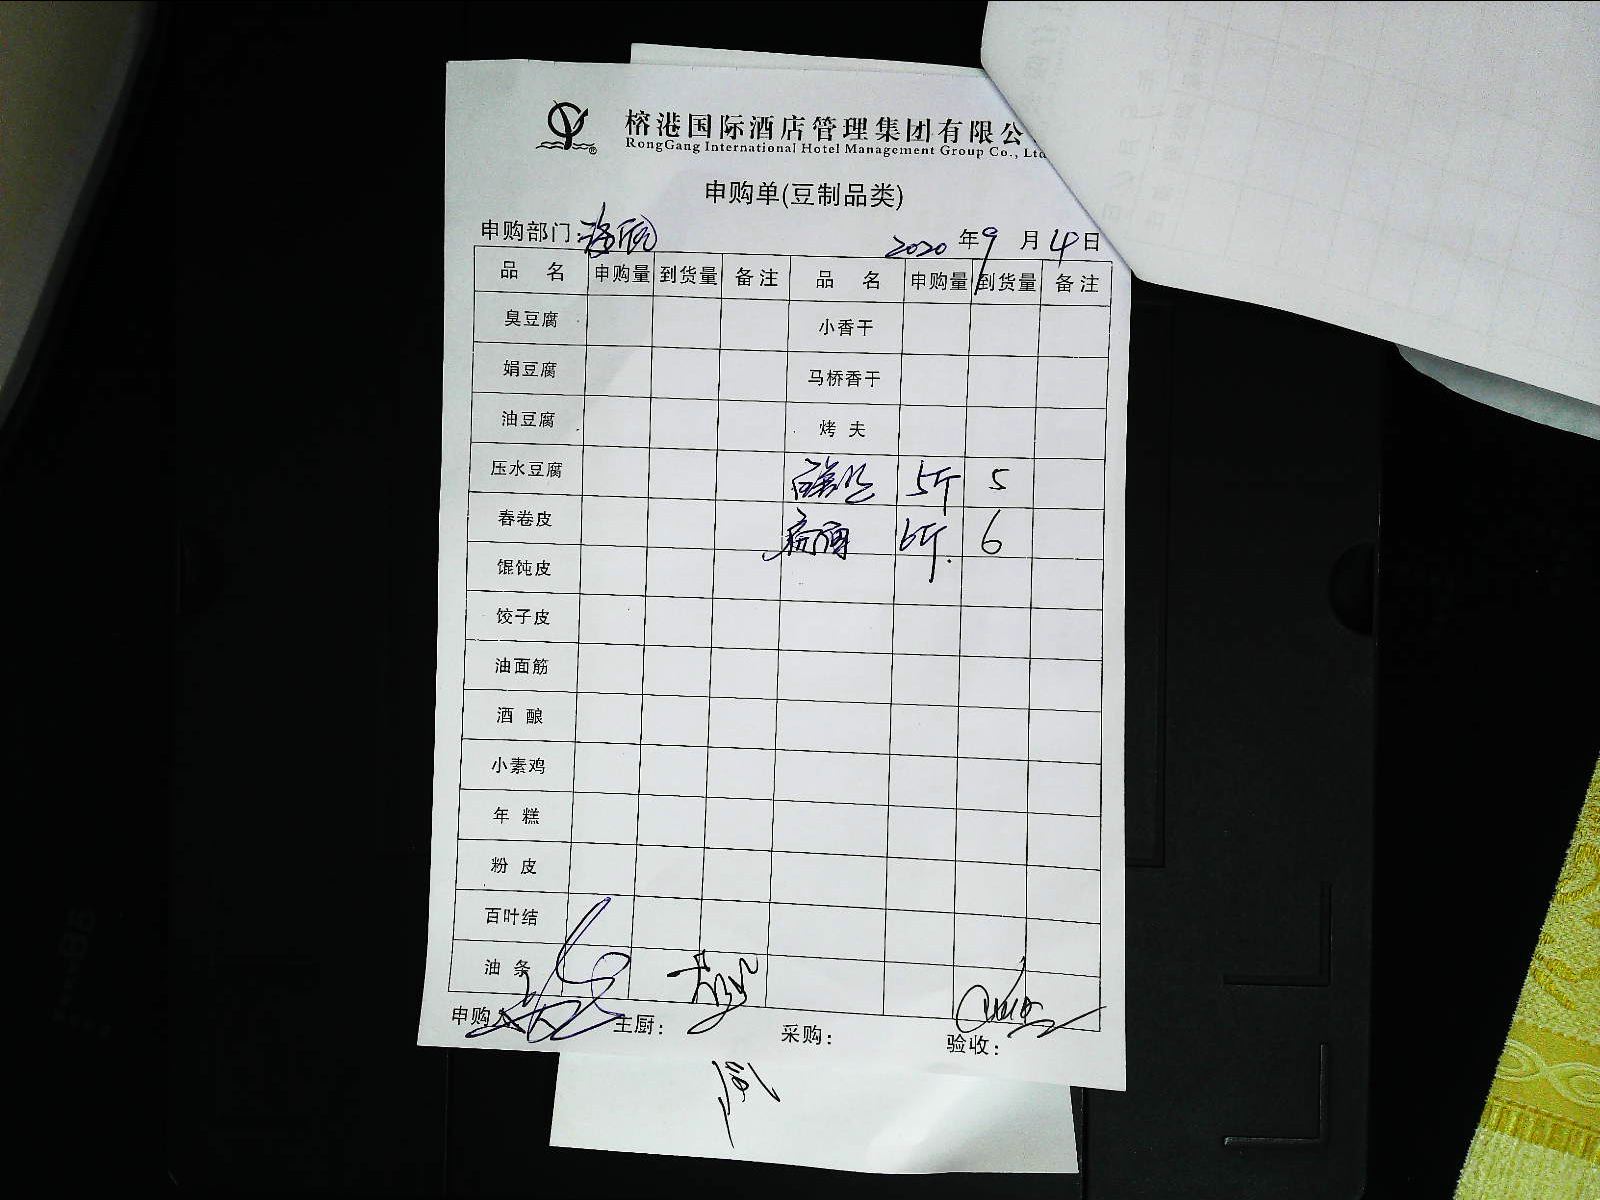 榕港国际酒店管理集团有限公
RongGang International Hotel Management Group Co., Ltd
申购单(豆制品类)
申购部门: 2020 年 9 月 4 日
品 名 申购量 到货量 备注 品 名 申购量 到货量 备注
臭豆腐 小香干
娟豆腐 马桥香干
油豆腐 烤 夫
压水豆腐 5斤 5
春卷皮 6斤 6
馄饨皮
饺子皮
油面筋
酒 酿
小素鸡
年 糕
粉 皮
百叶结
油 条
申购人 主厨: 采购: 验收: